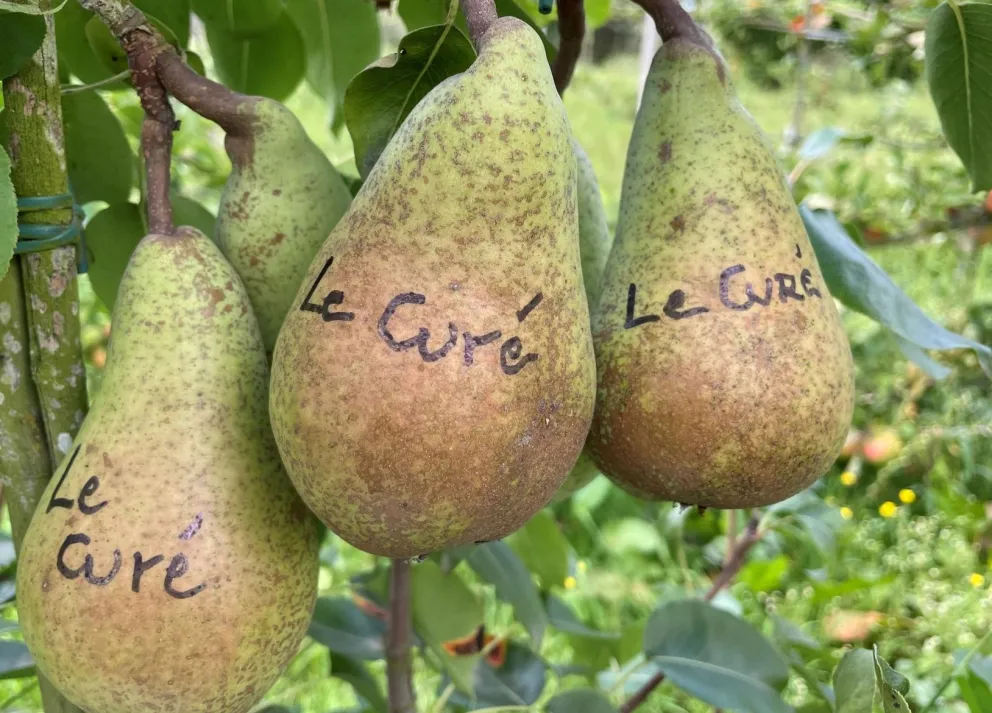 Le
Curé
Le Curé
Le Curé